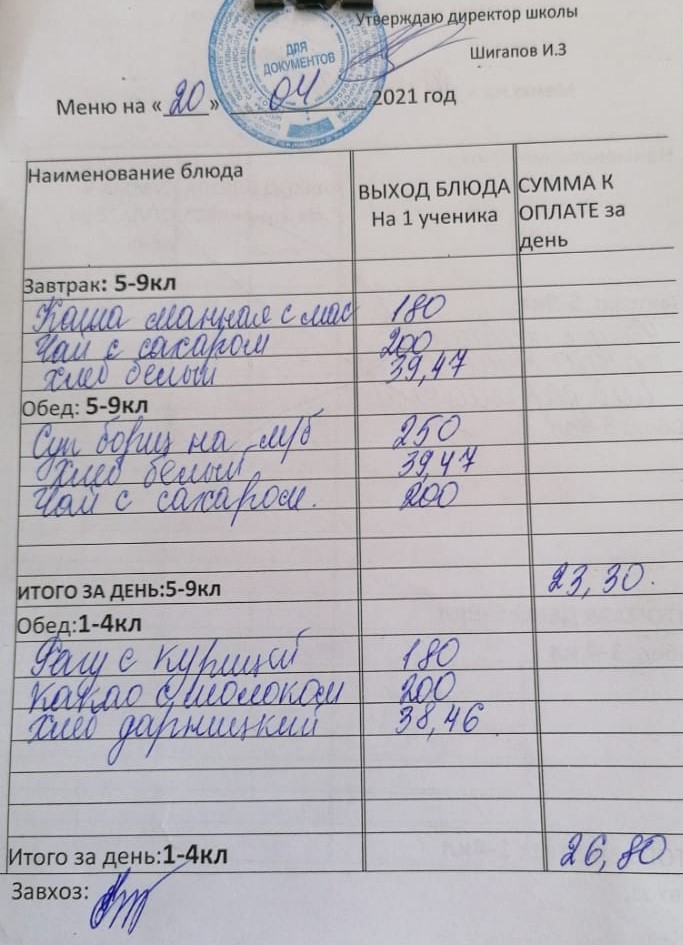 Утверждаю директор школы
Шигапов И.З
ДЛЯ
ДОКУМЕНТОВ
Меню на «20» 04 2021 год
Наименование блюда ВЫХОД БЛЮДА На 1 ученика СУММА К ОПЛАТЕ за день
Завтрак: 5-9кл
Каша манная с мас 180
Чай с сахаром 200
Хлеб белый 39,47
Обед: 5-9кл
Суп борщ на м/б 250
Хлеб белый 39,47
Чай с сахаром. 200
ИТОГО ЗА ДЕНЬ:5-9кл 23,30.
Обед:1-4кл
Рагу с курицей 180
Какао с молоком 200
Хлеб дарницкий 38,46
Итого за день:1-4кл 26,80
Завхоз: